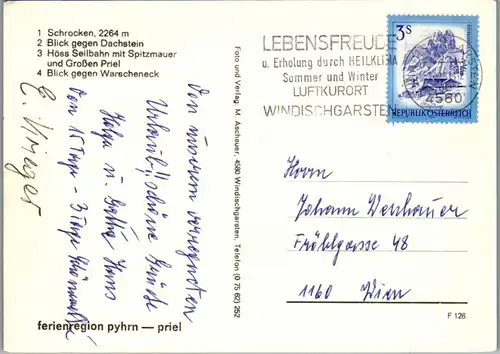 1 Schrocken, 2264 m
2 Blick gegen Dachstein
3 Höss Seilbahn mit Spitzmauer
und Großen Priel
4 Blick gegen Warscheneck
Von unserem verregneten
Urlaub!! schöne Grüße
Helga u. Hans
Von 15 Tage - 3 Tage
ferienregion pyhrn — priel
Foto und Verlag M. Aschauer, 4580 Windischgarsten, Telefon (0 75 62) 252
LEBENSFREUDE
u. Erholung durch HEILKLIMA
Sommer und Winter
LUFTKURORT
WINDISCHGARSTEN
4580
3s
REPUBLIK ÖSTERREICH
Herrn
Johann
Fröbelgasse 48
1160 Wien
F 126